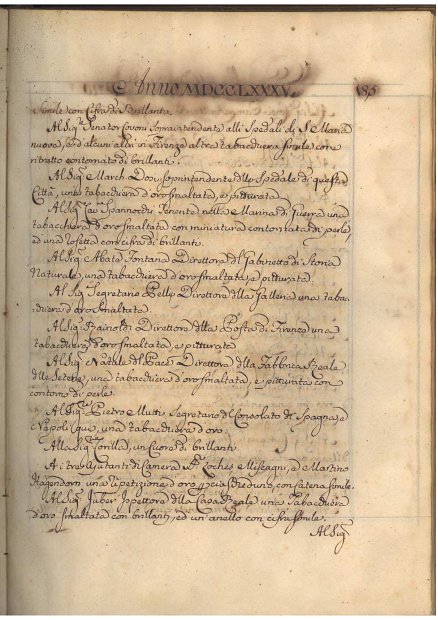 Anno MDCCLXXXV. 185
Simile con Cifra di Brillanti.
Al Sig.r Senator Covoni Sopraintendente alli Spedali di S. Maria
nuova, ed alcuni altri in Firenze altra tabacchiera simile con
ritratto contornato di brillanti.
Al Sig. March. Soprintendente dello Spedale di questa
Città, una tabacchiera d'oro smaltata, e pitturata.
Al Sig. Cav. Tenente nella Marina di Guerra una
tabacchiera d'oro smaltata con miniatura contornata di perle,
ed una rosetta con cifra di brillanti.
Al Sig. Abate Fontana Direttore del Gabinetto di Storia
Naturale, una tabacchiera d'oro smaltata, e pitturata.
Al Sig. Segretario Pelli Direttore della Galleria una tabac-
chiera d'oro smaltata.
Al Sig. Rainoldi Direttore della Posta di Firenze una
tabacchiera d'oro smaltata, e pitturata
Al Sig. Natale del Pace Direttore della Fabbrica Reale
delle Seterie, una tabacchiera d'oro smaltata, e pitturata con
contorno di perle.
Al Sig. Pietro Segretario del Consolato di Spagna, e
Napoli qui, una tabacchiera d'oro.
Alla Sig. Corilla, un Cuore di brillanti.
Ai tre Ajutanti di Camera e Martino
Hagendorn una ripetizione d'oro con catena simile.
Al Sig. Huber Ispettore della Casa Reale una Tabacchiera
d'oro smaltata con brillanti, ed un anello con cifra simile.
Al Sig.